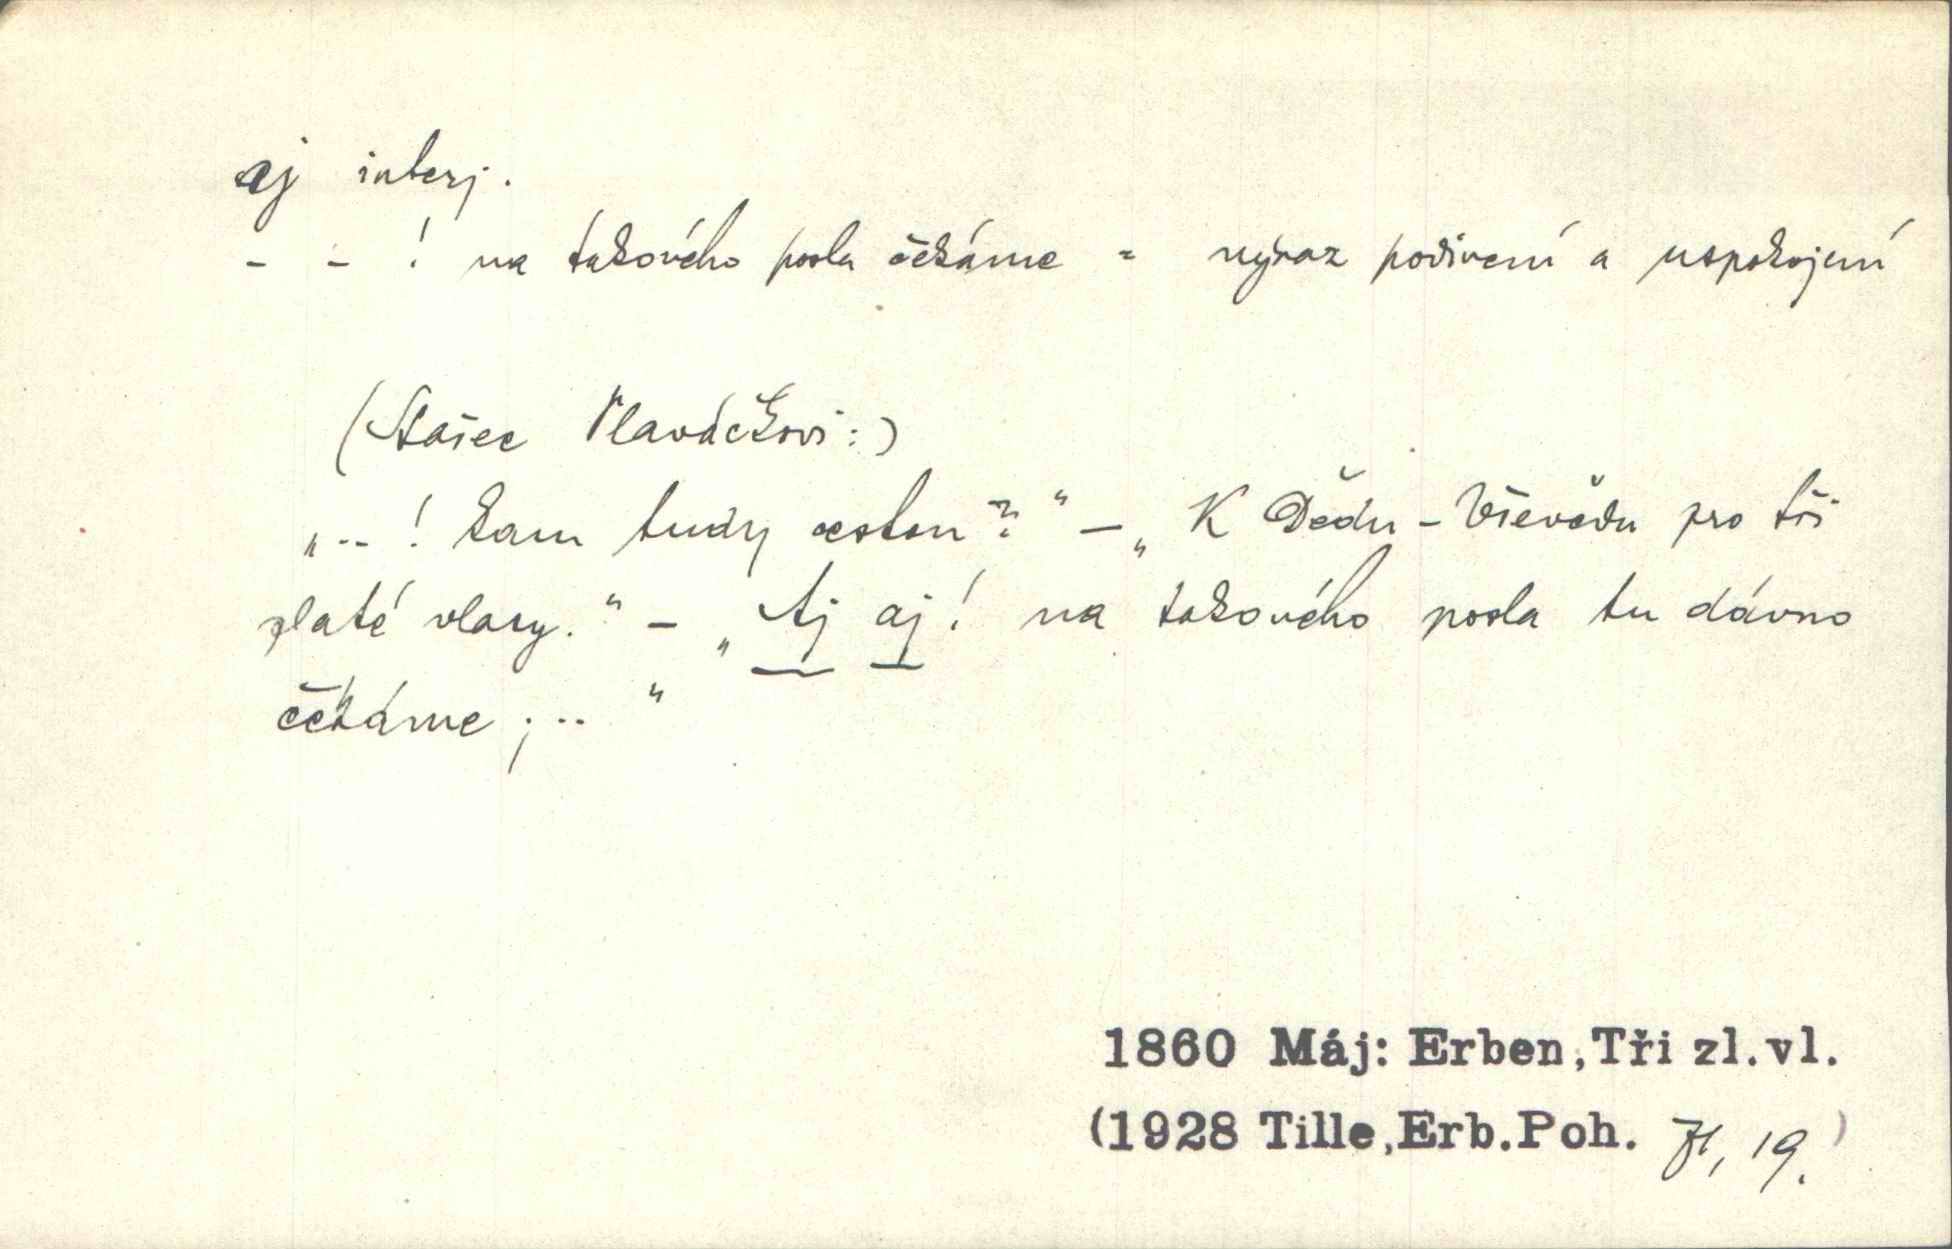 aj interj.
- - ! na takového posla čekáme = výraz podivení a uspokojení
(Stařec Plaváčkovi:)
„..! kam tudy cestou?“ – „K Dědu-Vševědu pro tři
zlaté vlasy.“ – „Aj aj! na takového posla tu dávno
čekáme ;.. “
1860 Máj: Erben, Tři zl. vl.
(1928 Tille, Erb. Poh. 19.)